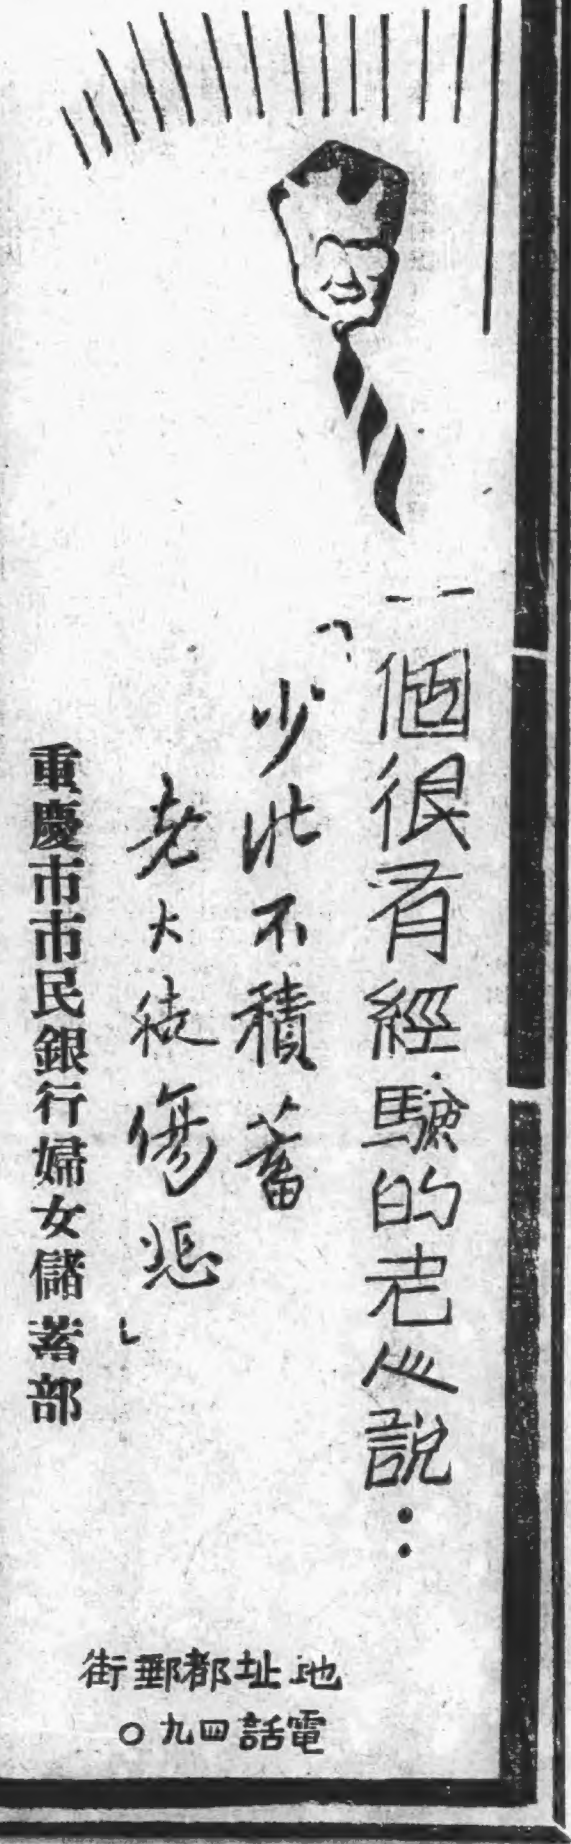 一個很有經驗的老人說：
「少壯不積蓄
老大徒傷悲」
重慶市市民銀行婦女儲蓄部
地址都郵街
電話四九〇